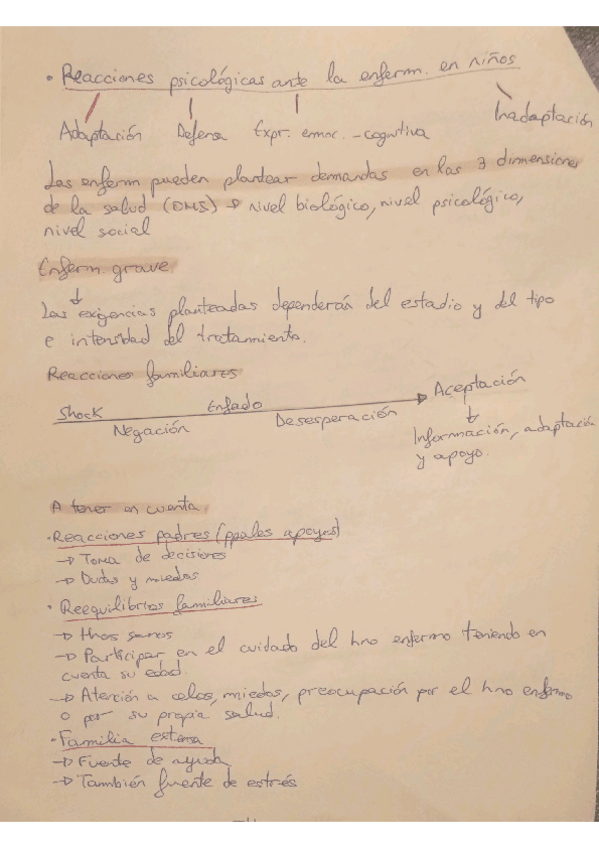 • Reacciones psicológicas ante la enferm. en niños
Adaptación Defensa Expr. emoc. - cognitiva Inadaptación
Las enferm pueden plantear demandas en las 3 dimensiones
de la salud (OMS) → nivel biológico, nivel psicológico,
nivel social
Enferm. grave
Las exigencias planteadas dependerán del estadio y del tipo
e intensidad del tratamiento.
Reacciones familiares
Shock Negación Enfado Desesperación Aceptación
Información, adaptación
y apoyo.
A tener en cuenta.
• Reacciones padres (ppales apoyos)
→ Toma de decisiones
→ Dudas y miedos
• Reequilibrios familiares
→ Hnos sanos
→ Participar en el cuidado del hno enfermo teniendo en
cuenta su edad.
→ Atención a celos, miedos, preocupación por el hno enfermo
o por su propia salud.
• Familia extensa
→ Fuente de ayuda
→ También fuente de estrés